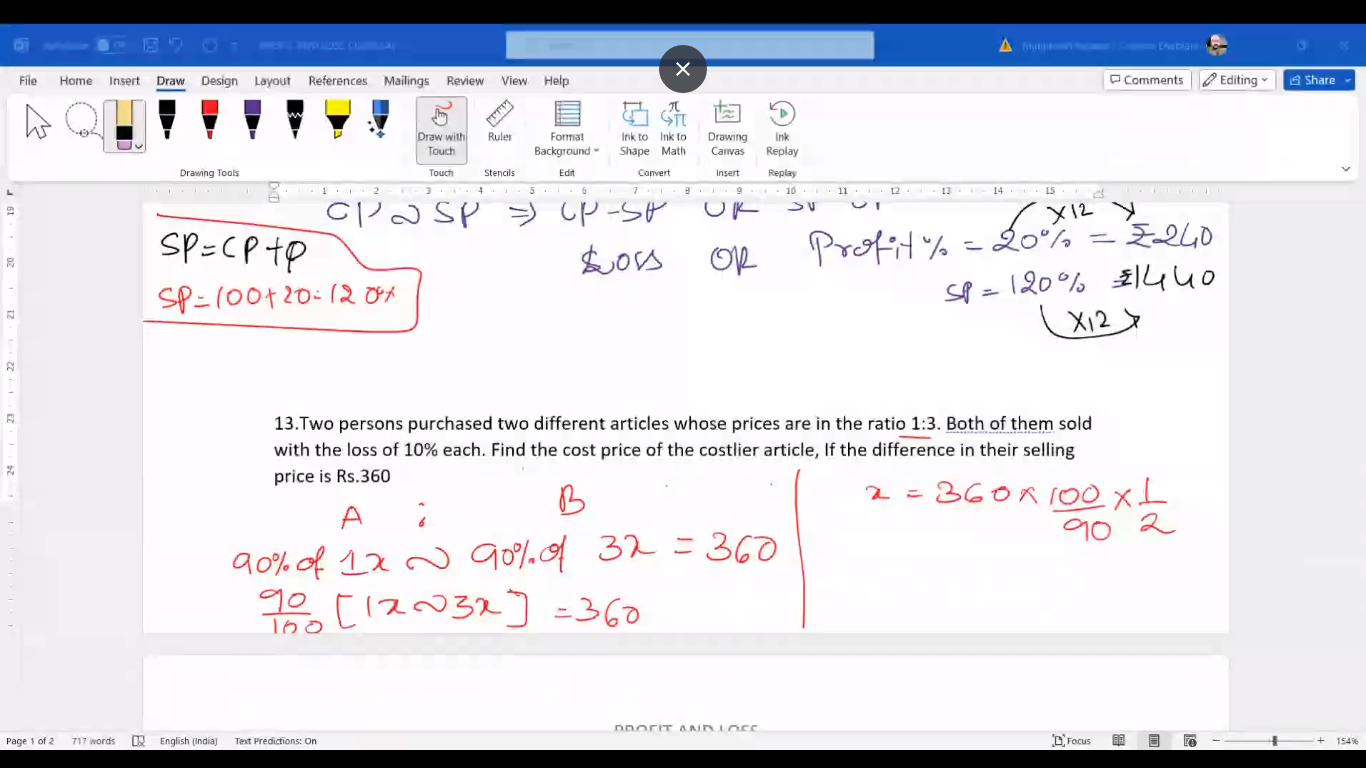 File Home Insert Draw Design Layout References Mailings Review View Help Comments Editing Share
Draw with Touch
Ruler
Format Background
Ink to Shape
Ink to Math
Drawing Canvas
Ink Replay
Drawing Tools Touch Stencils Edit Convert Insert Replay
1 2 3 4 5 6 7 8 9 10 11 12 13 14 15
CP ~ SP ⇒ CP-SP OR SP-CP
SP=CP+P
SP=100+20=120%
Loss OR Profit% = 20% = ₹240
X12
SP = 120% ₹1440
X12
13.Two persons purchased two different articles whose prices are in the ratio 1:3. Both of them sold
with the loss of 10% each. Find the cost price of the costlier article, If the difference in their selling
price is Rs.360
A : B
90% of 1x ~ 90% of 3x = 360
90/100 [1x ~ 3x] = 360
x = 360 × 100/90 × 1/2
PROFIT AND LOSS
19
20
21
22
23
24
Page 1 of 2 717 words English (India) Text Predictions: On Focus 154%